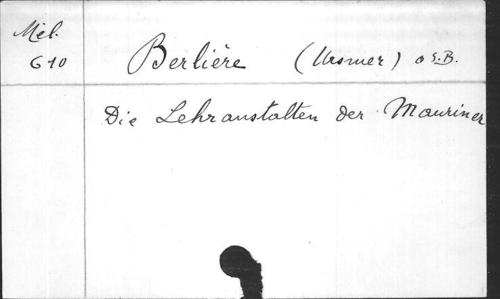 Mél.
610
Berlière (Ursmer) o.S.B.
Die Lehranstalten der Mauriner